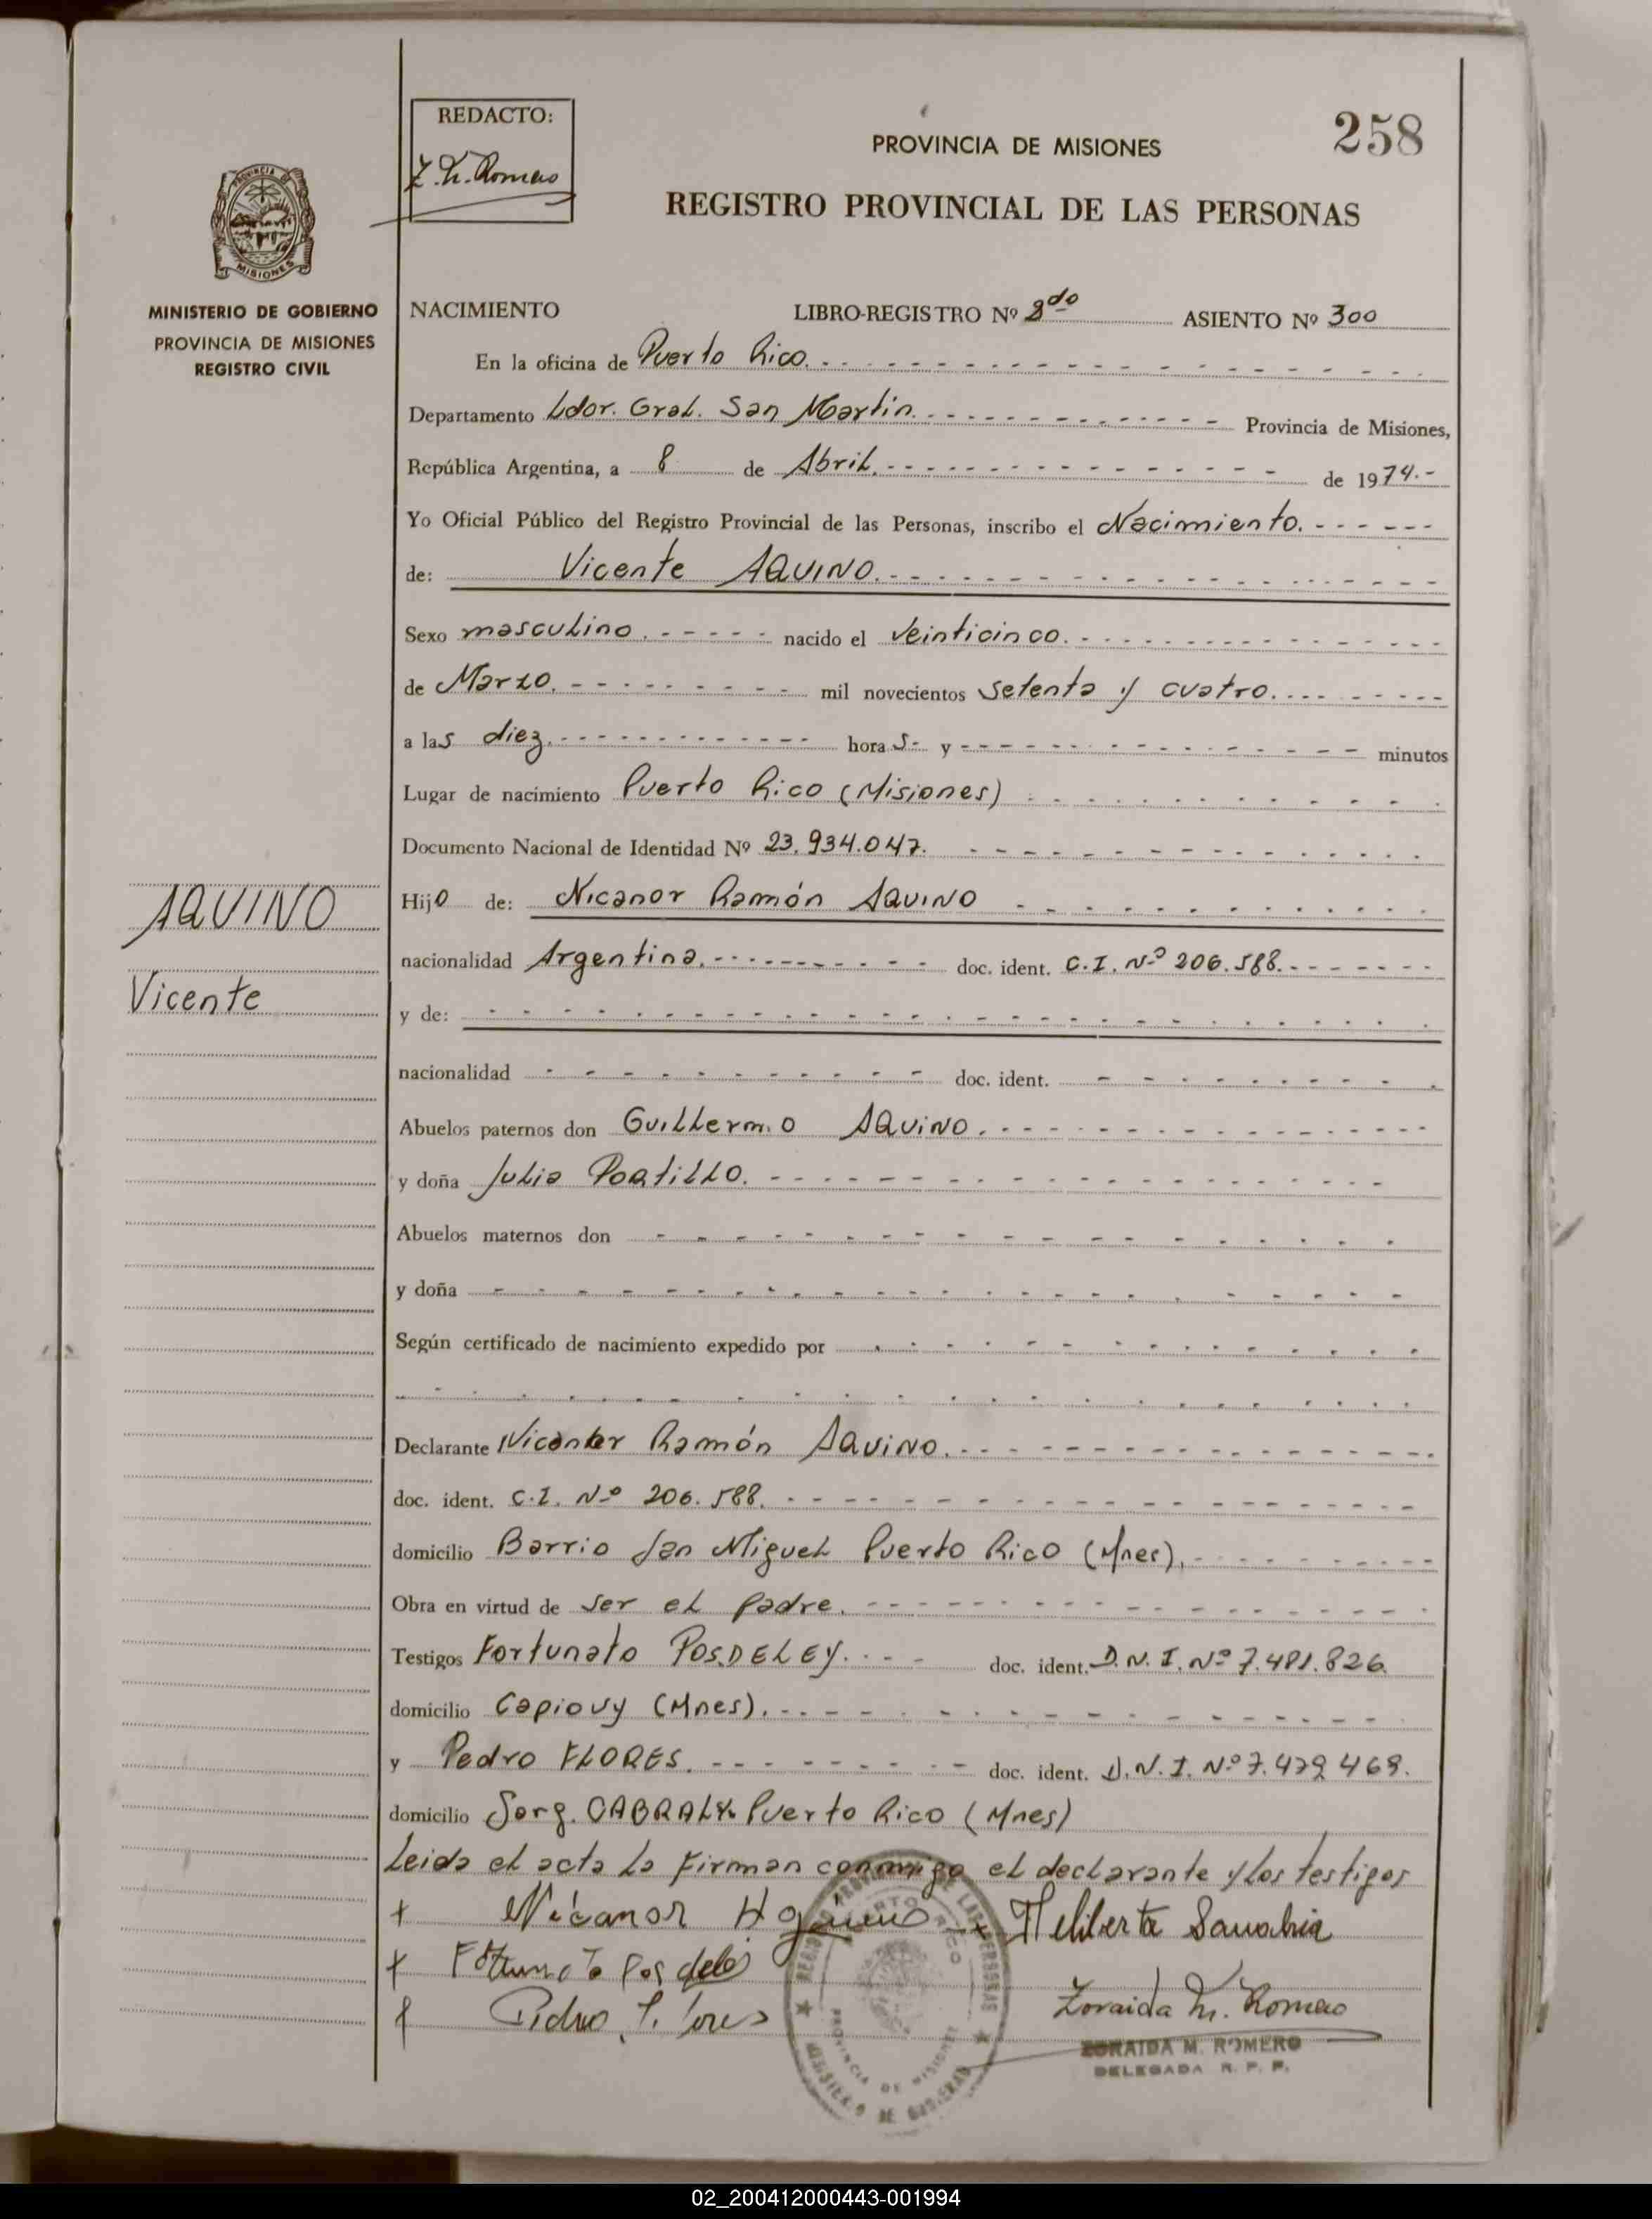 REDACTO:
Z. M. Romero
258
PROVINCIA DE MISIONES
REGISTRO PROVINCIAL DE LAS PERSONAS
PROVINCIA DE
MISIONES
MINISTERIO DE GOBIERNO
PROVINCIA DE MISIONES
REGISTRO CIVIL
NACIMIENTO LIBRO-REGISTRO Nº 2do ASIENTO Nº 300
En la oficina de Puerto Rico.
Departamento Ldor. Gral. San Martín. Provincia de Misiones,
República Argentina, a 8 de Abril. de 1974.-
Yo Oficial Público del Registro Provincial de las Personas, inscribo el Nacimiento.
de: Vicente AQUINO.
Sexo masculino. nacido el veinticinco.
de Marzo. mil novecientos setenta y cuatro.
a las diez. horas y minutos
Lugar de nacimiento Puerto Rico (Misiones)
Documento Nacional de Identidad Nº 23.934.047.
AQUINO
Vicente
Hijo de: Nicanor Ramón AQUINO
nacionalidad Argentina. doc. ident. C.I. Nº 206.588.
y de:
nacionalidad doc. ident.
Abuelos paternos don Guillermo AQUINO.
y doña Julia PORTILLO.
Abuelos maternos don
y doña
Según certificado de nacimiento expedido por
Declarante Nicanor Ramón AQUINO.
doc. ident. C.I. Nº 206.588.
domicilio Barrio San Miguel Puerto Rico (Mnes).
Obra en virtud de ser el padre.
Testigos Fortunato POSDELEY. doc. ident. D.N.I. Nº 7.481.826.
domicilio Capiovy (Mnes).
y Pedro FLORES. doc. ident. D.N.I. Nº 7.479.469.
domicilio Sarg. CABRAL Puerto Rico (Mnes)
Leida el acta la firman conmigo el declarante y los testigos
+ Nicanor Aquino + Heliberta Sanabria
+ Fortunato Posdeley
+ Pedro Flores
Zoraida M. Romero
ZORAIDA M. ROMERO
DELEGADA R. P. P.
REGISTRO PROVINCIAL DE LAS PERSONAS
PUERTO RICO
PROVINCIA DE MISIONES
MINISTERIO DE GOBIERNO
02_200412000443-001994